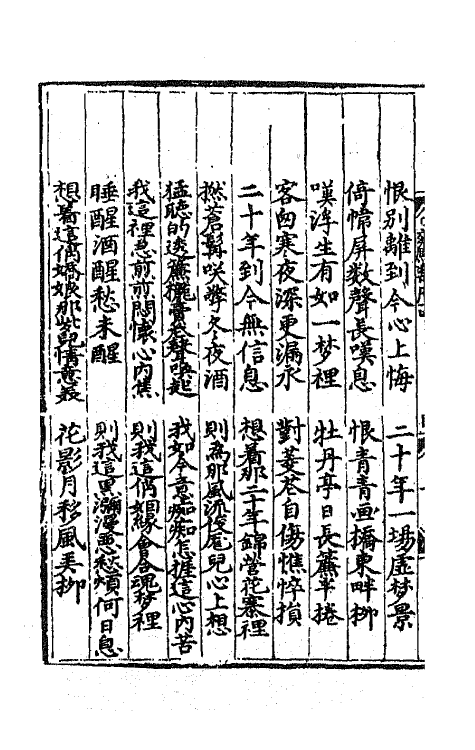 恨别離到今心上悔　二十年一塲虚梦景
倚幃屏数聲長嘆息　恨青青画橋東畔柳
嘆浮生有如一梦裡　牡丹亭日長簾半捲
客囱寒夜深更漏永　對菱花自傷憔悴損
二十年到今無信息　想着那二十年錦營花寨裡
撚蒼髯咲擎冬夜酒　則為那風流俊厖兒心上想
猛聴的透簾櫳賣花聲喚起　我如今意痴痴怎捱這心内苦
我這裡忍前前悶懷心内焦　則我這俏姻緣會合魂梦裡
睡醒酒醒愁未醒　則我這黒瀰漫悪愁煩何日息
想着這俏嬌娘那些認情意最　花影月移風美柳